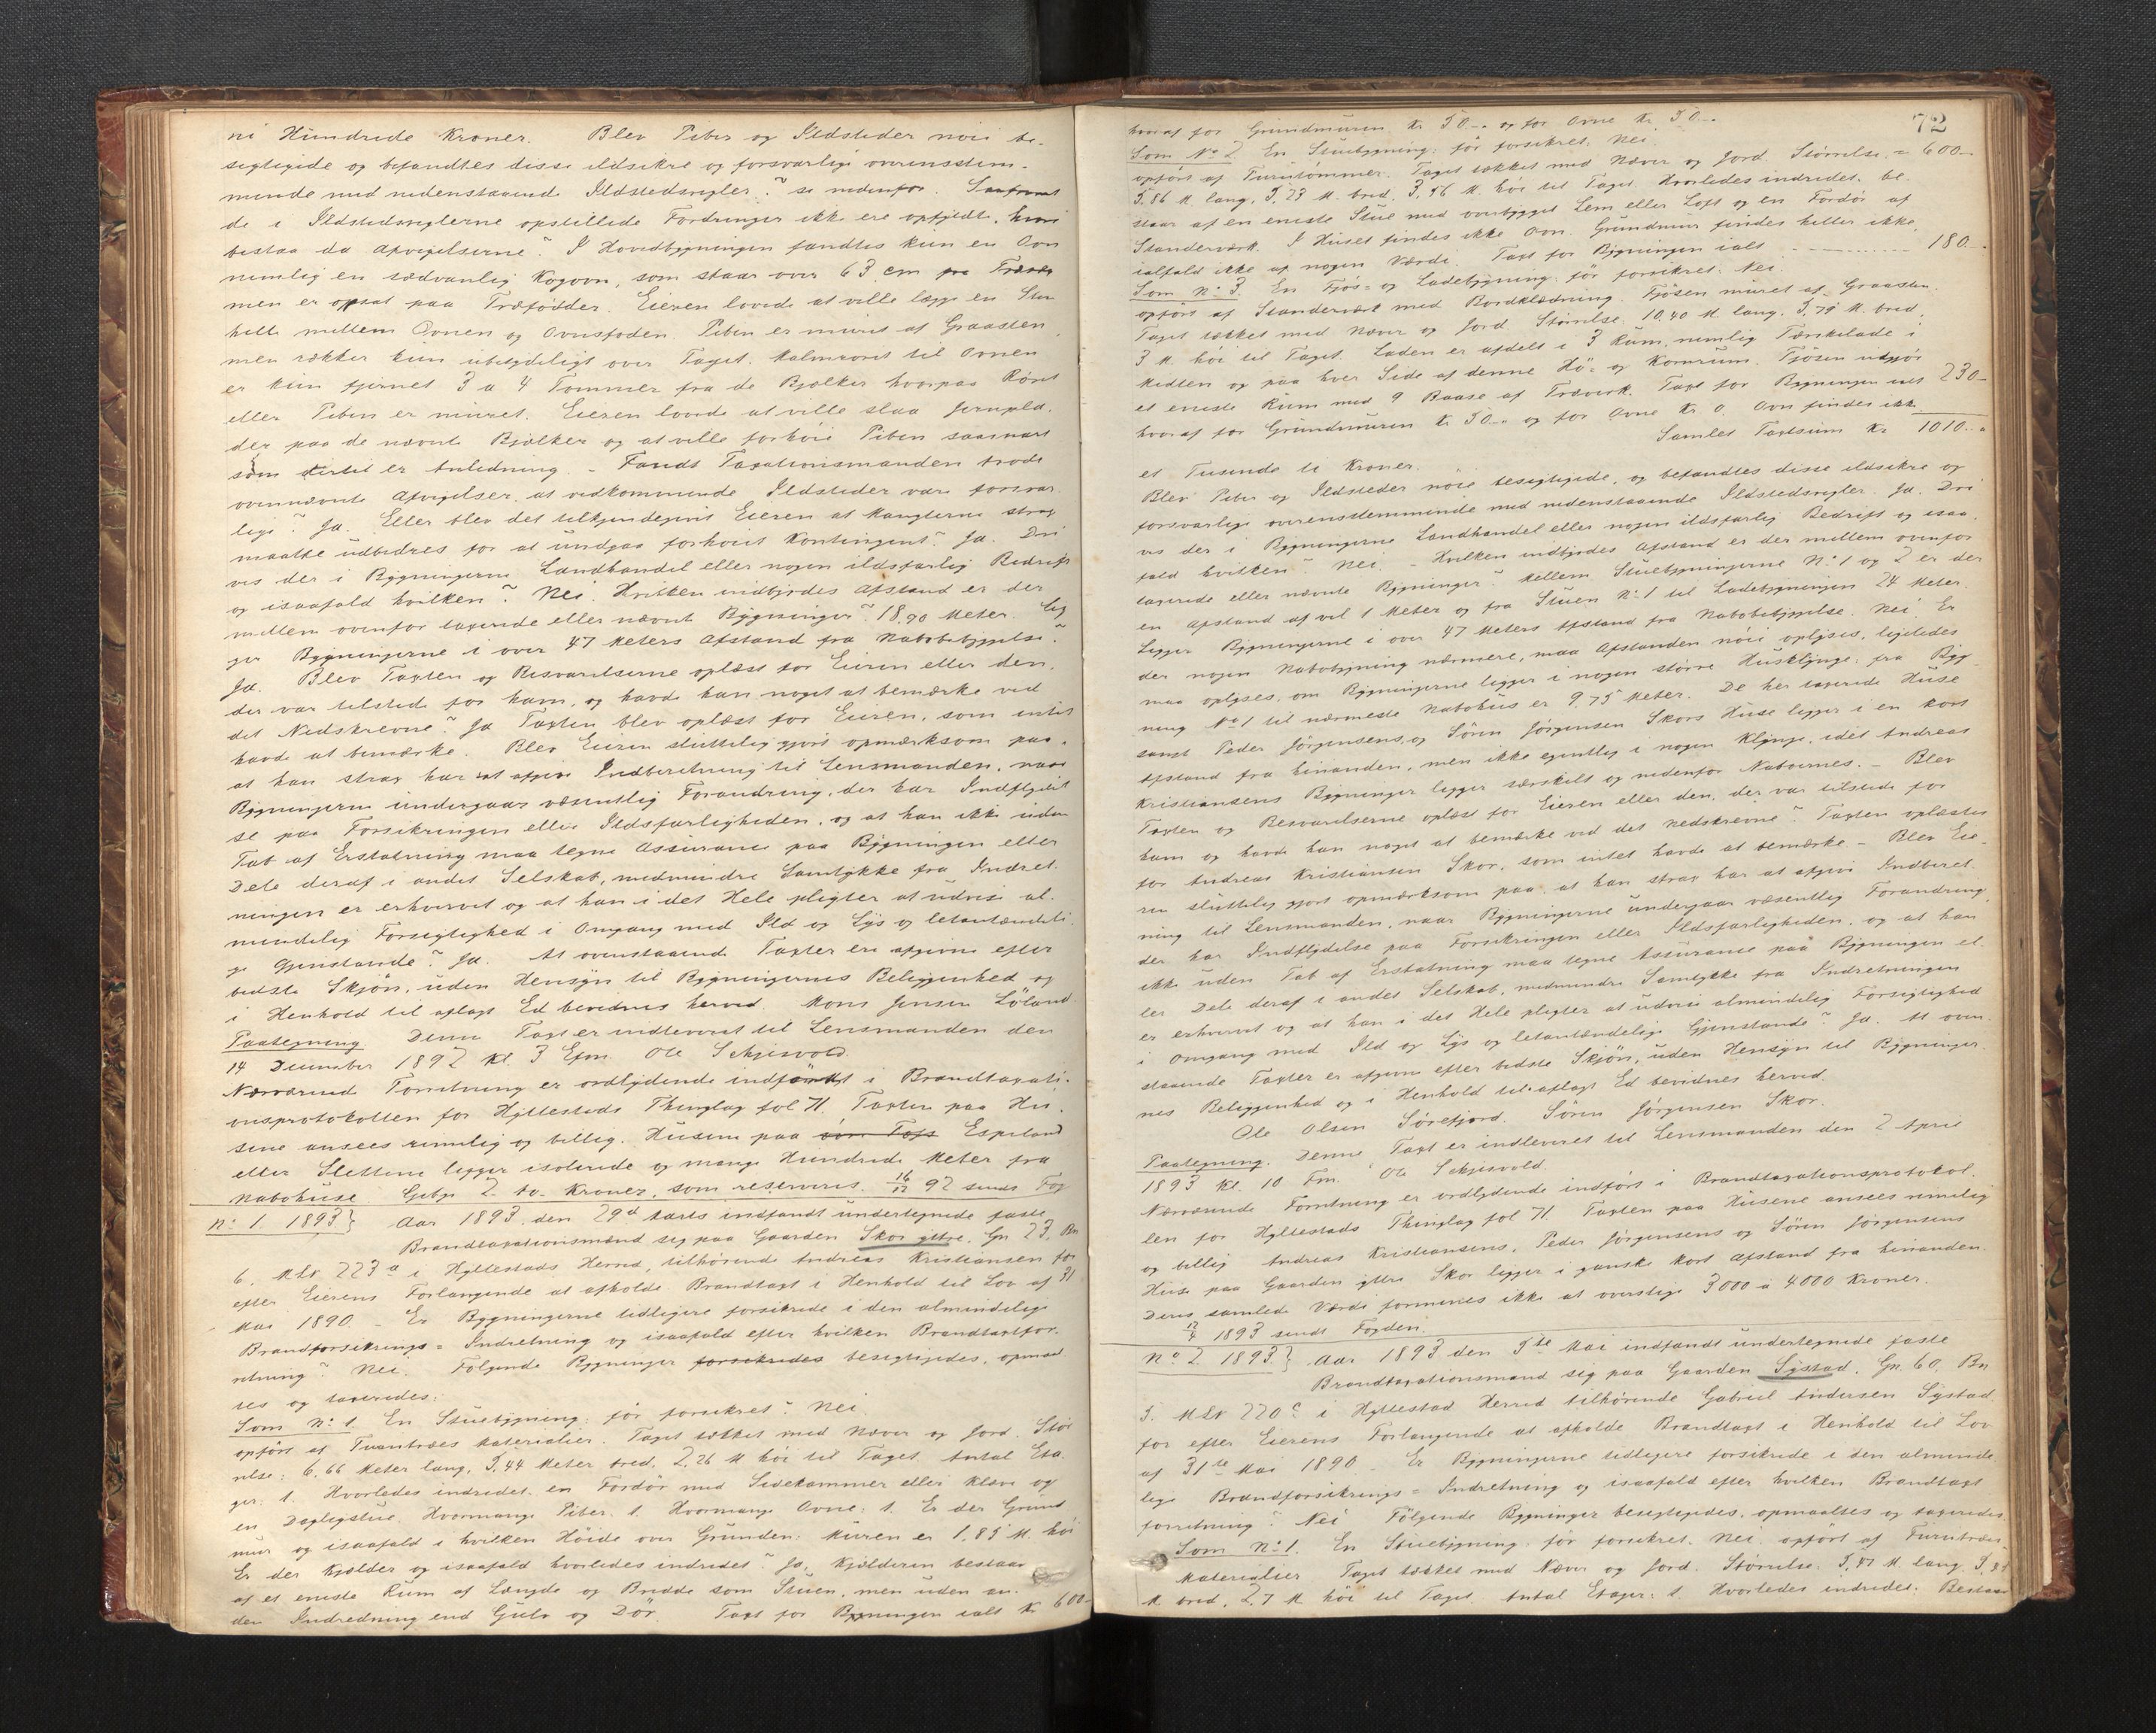 ni Hundrede Kroner. Blev Piber og Ildsteder nöie be-
sigtigede og befandtes disse ildsikre og forsvarlige overensstem-
mende med nedenstaaende Ildstedsregler? se nedenfor. Saafremt
de i Ildstedsreglerne opstillede Fordringer ikke ere opfyldte, hvori
bestaa da Afvigelserne? I Hovedbygningen fandtes kun en Ovn
nemlig en sædvanlig Kogovn, som staar over 63 cm fra Træværk
men er opsat paa Træfödder. Eieren lovede at ville lægge en Sten
helle mellem Ovnen og Ovnsfoden. Piben er muret af Graasten,
men rækker kun ubetydeligt over Taget. Halmroret til Ovnen
er kun fjernet 3 a 4 Tommer fra de Bjælker hvorpaa Röret
eller Piben er muret. Eieren lovede at ville slaa Jernpla-
der paa de nævnte Bjælker og at ville forhöie Piben saasnart
som dertil er Anledning. - Fandt Taxationsmanden trods
ovennævnte Afvigelser, at vedkommende Ildsteder vare forsvar
lige? Ja. Eller blev det tilkjendegivet Eieren at Manglerne strax
maatte udbedres for at undgaa forhöiet Kontingent? Ja. Dri
ves der i Bygningerne Landhandel eller nogen ildsfarlig Bedrift
og isaafald hvilken? Nei. Hvilken indbyrdes Afstand er der
mellem ovenfor taxerede eller nævnte Bygninger? 18,90 Meter. Lig
ger Bygningerne i over 47 Meters Afstand fra Nabobebyggelse?
Ja. Blev Taxten og Besvarelserne oplæst for Eieren eller den,
der var tilstede for ham, og havde han noget at bemærke ved
det Nedskrevne? Ja Taxten blev oplæst for Eieren, som intet
havde at bemærke. Blev Eieren sluttelig gjort opmærksom paa,
at han strax har at afgive Indberetning til Lensmanden, naar
Bygningerne undergaar væsentlig Forandring, der har Indflydel
se paa Forsikringen eller Ildsfarligheden, og at han ikke uden
Tab af Erstatning maa tegne Assurance paa Bygningen eller
Dele deraf i andet Selskab, medmindre Samtykke fra Indret-
ningen er erhvervet og at han i det Hele pligter at udvise al-
mindelig Forsigtighed i Omgang med Ild og Lys og letantændeli
ge Gjenstande? Ja. At ovenstaaende Taxter ere afgivne efter
bedste Skjön, uden Hensyn til Bygningernes Beliggenhed og
i Henhold til aflagt Ed bevidnes herved. Mons Jensen Löland
Paategning Denne Taxt er indleveret til Lensmanden den
14 December 1892 Kl 3 Efm. Ole Schjesvold.
Nærværende Forretning er ordlydende indfört i Brandtaxati-
onsprotokollen for Hyllestads Thinglag fol 71. Taxten paa Hu-
sene ansees rimelig og billig. Husene paa Espeland
eller Slettene ligger isolerede og mange Hundrede Meter fra
Nabohuse Gebyr 2 to Kroner, som reserveres. 16/12 92 sendt Fog
No 1. 1893} Aar 1893, den 29de Marts indfandt undertegnede faste
Brandtaxationsmænd sig paa Gaarden Skor ytre, Gn 23, Bn
6, MLr 223a i Hyllestads Herred, tilhörende Andreas Kristiansen for
efter Eierens Forlangende at afholde Brandtaxt i Henhold til Lov af 31
Mai 1890. - Er Bygningerne tidligere forsikrede i den almindelige
Brandforsikrings = Indretning og isaafald efter hvilken Brandtaxtfor-
retning? Nei. Fölgende Bygninger forsikredes besigtigedes, opmaal
tes og taxeredes:
Som No 1. En Stuebygning: för forsikret? Nei.
opfört af Materialier. Taget tækket med Næver og Jord. Stör
relse: 6,66 Meter lang, 5,44 Meter bred, 2,26 M höi til Taget. Antal Eta
ger: 1. Hvorledes indredet: en Fordör med Sidekammer eller Kleve og
en Dagligstue. Hvormange Piber: 1. Hvormange Ovne: 1. Er der Grund
mur og isaafald i hvilken Höide over Grunden: Muren er 1,85 M. höi
Er der Kjælder og isaafald hvorledes indredet? Ja, Kjælderen bestaar
af et eneste Rum af Længde og Bredde som Stuen, men uden an-
den Indredning end Gulv og Dör. Taxt for Bygningen ialt Kr 600.-
72
hvoraf for Grundmuren Kr 50.- og for Ovne Kr 50.-
Som No 2 En Stuebygning; för forsikret: Nei. = 600-
opfört af Furutömmer. Taget tækket med Næver og Jord. Störrelse:
5,86 M. lang, 5,23 M. bred, 3,46 M. höi til Taget. Hvorledes indredet: be-
staar af en eneste Stue med overbygget Lem eller Loft og en Fordör af
Standerværk. I Huset findes ikke Ovn. Grundmur findes heller ikke,
ialfald ikke af nogen Værdi. Taxt for Bygningen ialt - - - 180.-
Som No 3. En Fjös= og Ladebygning: för forsikret: Nei.
opfört af Standerværk med Bordklædning. Fjösen muret af Graasten.
Taget tækket med Næver og Jord Störrelse 10,40 M. lang, 5,79 M. bred,
3 M. höi til Taget. Laden er afdelt i 3 Rum, nemlig Tærskelade i
Midten og paa hver Side af denne Hö= og Kornrum. Fjösen udgjör
et eneste Rum med 9 Baase af Træverk. Taxt for Bygningen ialt 230-
hvoraf for Grundmuren Kr 50.- og for Ovne Kr 0. Ovn findes ikke
Samlet Taxtsum Kr 1010.-
et Tusinde ti Kroner.
Blev Piber og Ildsteder nöie besigtigede, og befandtes disse ildsikre og
forsvarlige overensstemmende med nedenstaaende Ildstedsregler: Ja. Dri
ves der i Bygningerne Landhandel eller nogen ildsfarlig Bedrift og isaa
fald hvilken? Nei - Hvilken indbyrdes Afstand er der mellem ovenfor
taxerede eller nævnte Bygninger? Mellem Stuebygningerne No 1 og 2 er der
en Afstand af vel 1 Meter og fra Stuen No 1 til Ladebygningen 24 Meter.
Ligger Bygningerne i over 47 Meters Afstand fra Nabobebyggelse. Nei Er
der nogen Nabobygning nærmere, maa Afstanden nöie oplyses, ligeledes
maa oplyses, om Bygningerne ligger i nogen större Husklynge: fra Byg-
ning No 1 til nærmeste Nabohus er 9,75 Meter. De her taxerede Huse
samt Peder Jörgensens, og Sören Jörgensen Skors Huse ligger i en kort
Afstand fra hinanden, men ikke egentlig i nogen Klynge, idet Andreas
Kristiansens Bygninger ligger særskilt og nedenfor Naboernes. - Blev
Taxten og Besvarelserne oplæst for Eieren eller den, der var tilstede for
ham og havde han noget at bemærke ved det nedskrevne? Taxten oplæstes
for Andreas Kristiansen Skor, som intet havde at bemærke - Blev Eie
ren sluttelig gjort opmærksom paa, at han strax har at afgive Indberet
ning til Lensmanden, naar Bygningerne undergaar væsentlig Forandring,
der har Indflydelse paa Forsikringen eller Ildsfarligheden, og at han
ikke uden Tab af Erstatning maa tegne Assurance paa Bygningen el
ler Dele deraf i andet Selskab, medmindre Samtykke fra Indretningen
er erhvervet og at han i det Hele pligter at udvise almindelig Forsigtighed
i Omgang med Ild og Lys og letantændelige Gjenstande? Ja. At oven-
staaende Taxter er afgivne efter bedste Skjön, uden Hensyn til Bygninger-
nes Beliggenhed og i Henhold til aflagt Ed bevidnes herved.
Ole Olsen Sörefjord. Sören Jörgensen Skor.
Paategning. Denne Taxt er indleveret til Lensmanden den 2 April
1893 Kl. 10 Fm. Ole Schjesvold.
Nærværende Forretning er ordlydende indfört i Brandtaxationsprotokol-
len for Hyllestads Thinglag fol 71. Taxten paa Husene ansees rimelig
og billig Andreas Kristiansens, Peder Jörgensens og Sören Jörgensens
Huse paa Gaarden ytre Skor ligger i ganske kort Afstand fra hinanden.
Deres samlede Værdi formenes ikke at overstige 3000 a 4000 Kroner.
12/4 1893 sendt Fogden.
No 2 1893.} Aar 1893 den 5te Mai indfandt undertegnede faste
Brandtaxationsmand sig paa Gaarden Systad, Gn. 60, Bn
3. MLr 220c i Hyllestad Herred tilhörende Gabriel Andersen Systad
for efter Eierens Forlangende at afholde Brandtaxt i Henhold til Lov
af 31te Mai 1890 - Er Bygningerne tidligere forsikrede i den alminde
lige Brandforsikrings = Indretning og isaafald efter hvilken Brandtaxt
forretning? Nei Fölgende Bygninger besigtigedes, opmaaltes og taxeredes,
Som No 1. En Stuebygning. för forsikret. Nei. opfört af Furutræes-
Materialier Taget tækket med Næver og Jord. Störrelse: M. lang,
M bred, 2,7 M höi til Taget. Antal Etager: 1. Hvorledes indredet. Bestaar